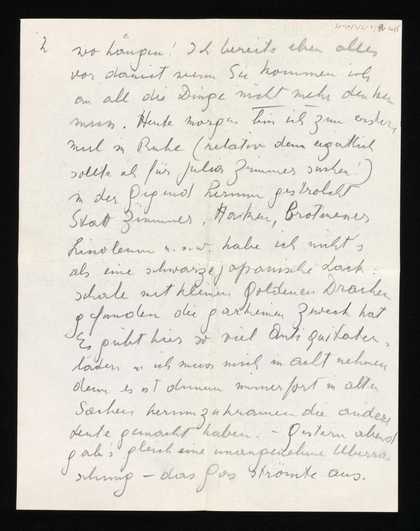 2
wo hängen! Ich bereite eben alles
vor damit wenn Sie kommen ich
an all die Dinge nicht mehr denken
muss. Heute morgen bin ich zum ersten
mal in Ruhe (relativ denn eigentlich
sollte ich für Julius Zimmer suchen!)
in der Gegend herum gestrolcht
Statt Zimmer, Haken,
Linoleum u.s.w. habe ich nichts
als eine schwarze japanische Lack-
schale mit kleinen goldenen Drachen
gefunden die gar keinen Zweck hat
Es gibt hier so viel Antiquitäten-
laden u ich muss mich in acht nehmen
denn es ist dumm immerfort in alten
Sachen herumzukramen die andere
Leute gemacht haben. – Gestern abend
gab's gleich eine unangenehme Überra
schung – das Gas strömte aus.